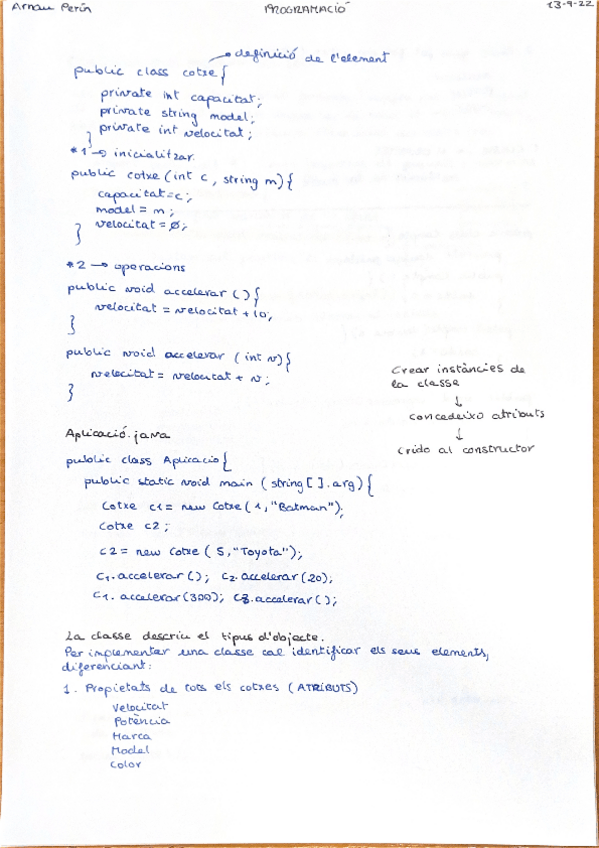 Arnau Perín
PROGRAMACIÓ
13-9-22
→ definició de l'element
public class cotxe{
private int capacitat;
private string model;
private int velocitat;
}
*1 → inicialitzar.
public cotxe (int c, string m){
capacitat=c;
model = m;
velocitat = Ø;
}
*2 → operacions
public void accelerar (){
velocitat = velocitat + 10;
}
public void accelerar (int v){
velocitat = velocitat + v;
}
Crear instàncies de
la classe
↓
concedeixo atributs
↓
Crido al constructor
Aplicació.java
public class Aplicacio{
public static void main (string[].arg){
Cotxe c1 = new Cotxe(1,"Batman");
Cotxe c2;
c2 = new Cotxe (5,"Toyota");
C1.accelerar(); C2.accelerar(20);
C1.accelerar(300); C3.accelerar();
La classe descriu el tipus d'objecte.
Per implementar una classe cal identificar els seus elements,
diferenciant:
1. Propietats de tots els cotxes (ATRIBUTS)
Velocitat
Potència
Marca
Model
Color